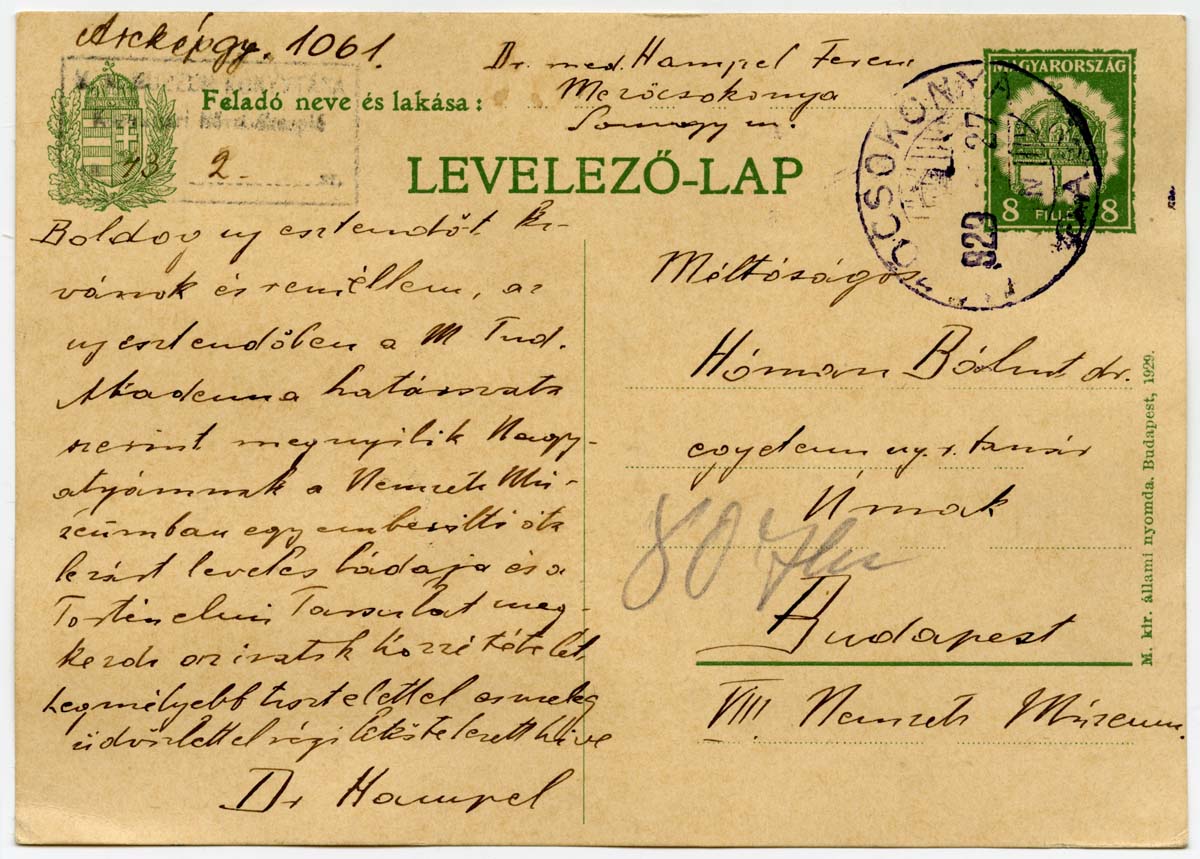 Arcképgy. 1061.
Dr. med. Hampel Ferenc
Feladó neve és lakása:
Mezőcsokonya
Somogy m.
13 2.
LEVELEZŐ-LAP
MAGYARORSZÁG
8 FILLÉR 8
929
27
Boldog uj esztendőt kí-
vánok és remélem, az
uj esztendőben a M Tud.
Akadémia határozata
szerint megnyilik Nagy-
atyámnak a Nemzeti Mú-
zeumban egy emberöltő óta
lezárt leveles ládája és a
Történelmi Társulat meg-
kezdi az iratok közzétételét
Legmélyebb tisztelettel és meleg
üdvözlettel régi híve
Dr Hampel
Méltóságos
Hóman Bálint dr.
egyetemi ny. r. tanár
Úrnak
Budapest
VIII Nemzeti Múzeum.
80
M. kir. állami nyomda. Budapest, 1929.